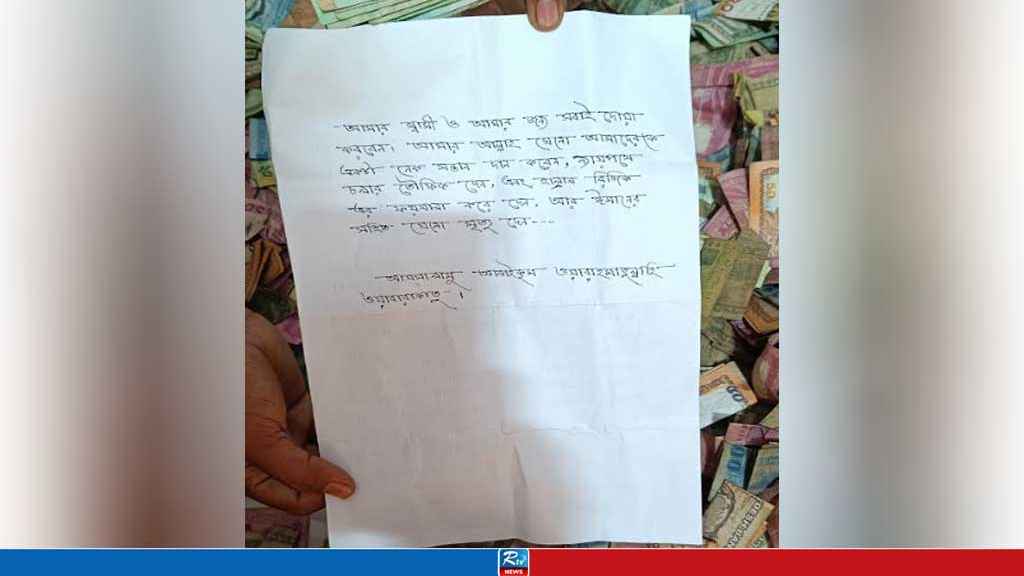 আমার স্বামী ও আমার জন্য সবাই দোয়া
করবেন। আমার আল্লাহ যেনো আমাদেরকে
একটা নেক সন্তান দান করেন, ন্যায়পথে
চলার তৌফিক দেন, এবং হালাল রিযিকে
এর ফয়সালা করে দেন, আর ঈমানের
সহিত যেনো মৃত্যু দেন---
আসসালামু আলাইকুম ওয়ারাহমাতুল্লাহি
ওয়াবারাকাতুহ।
Rtv
NEWS